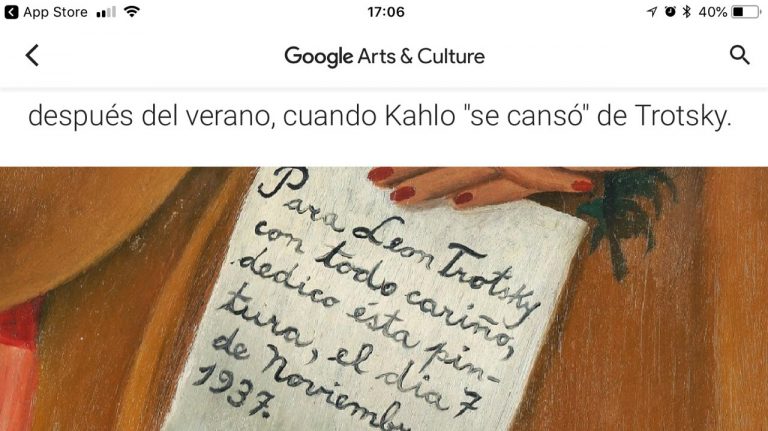 App Store 17:06 40%
Google Arts & Culture
después del verano, cuando Kahlo "se cansó" de Trotsky.
Para Leon Trotsky
con todo cariño,
dedico ésta pin-
tura, el dia 7
de Noviembr
1937.